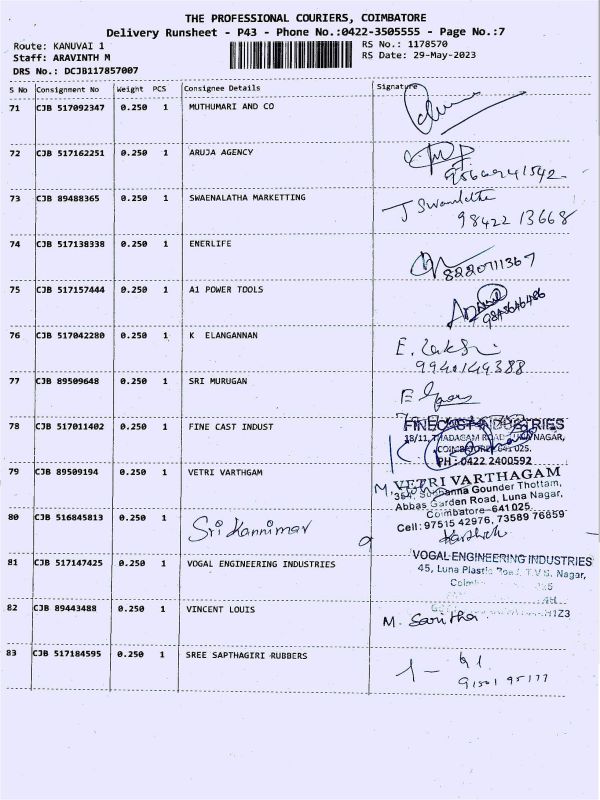 THE PROFESSIONAL COURIERS, COIMBATORE
Delivery Runsheet - P43 - Phone No.:0422-3505555 - Page No.:7
Route: KANUVAI 1 RS No.: 1178570
Staff: ARAVINTH M RS Date: 29-May-2023
DRS No.: DCJB117857007
S No Consignment No Weight PCS Consignee Details Signature
71 CJB 517092347 0.250 1 MUTHUMARI AND CO
72 CJB 517162251 0.250 1 ARUJA AGENCY
73 CJB 89488365 0.250 1 SWAENALATHA MARKETTING
J Swarnlatha
98422 13668
74 CJB 517138338 0.250 1 ENERLIFE
8220711367
75 CJB 517157444 0.250 1 A1 POWER TOOLS
76 CJB 517042280 0.250 1 K ELANGANNAN
E.
9940149388
77 CJB 89509648 0.250 1 SRI MURUGAN
E
78 CJB 517011402 0.250 1 FINE CAST INDUST
FINECAST INDUSTRIES
NAGAR,
COIMBATORE-641 025.
PH : 0422 2400592
79 CJB 89509194 0.250 1 VETRI VARTHGAM
VETRI VARTHAGAM
Gounder Thottam,
Abbas Garden Road, Luna Nagar,
Coimbatore-641025
Cell: 97515 42976, 73589 76859
80 CJB 516845813 0.250 1 Sri Kannimar
Karthik
81 CJB 517147425 0.250 1 VOGAL ENGINEERING INDUSTRIES
VOGAL ENGINEERING INDUSTRIES
45, Luna Plastic Road, T.V.S. Nagar,
82 CJB 89443488 0.250 1 VINCENT LOUIS
M. Saritha
83 CJB 517184595 0.250 1 SREE SAPTHAGIRI RUBBERS
91501 95177